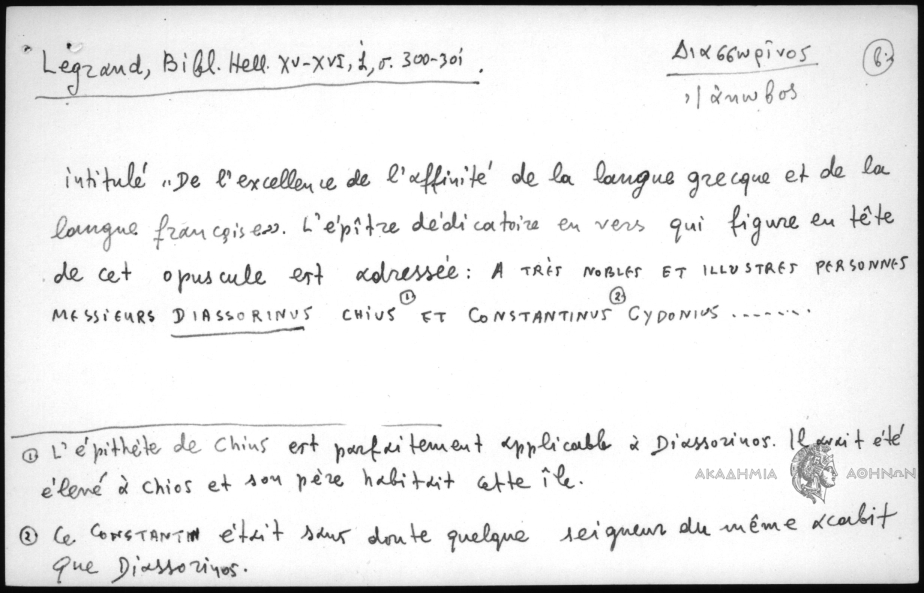 Legrand, Bibl. Hell. XV-XVI, ά, σ. 300-301.
Διασσωρῖνος
Ἰάκωβος
intitulé „De l'excellence de l'affinité de la langue grecque et de la
langue françoise». L'épître dédicatoire en vers qui figure en tête
de cet opuscule est adressée: A TRÈS NOBLES ET ILLUSTRES PERSONNES
MESSIEURS DIASSORINUS CHIUS ① ET CONSTANTINUS ② CYDONIUS ........
① L'épithète de Chius est parfaitement applicable à Diassorinos. Il avait été
élevé à Chios et son père habitait cette île.
ΑΚΑΔΗΜΙΑ ΑΘΗΝΩΝ
② Ce CONSTANTIN était sans doute quelque seigneur du même acabit
que Diassorinos.